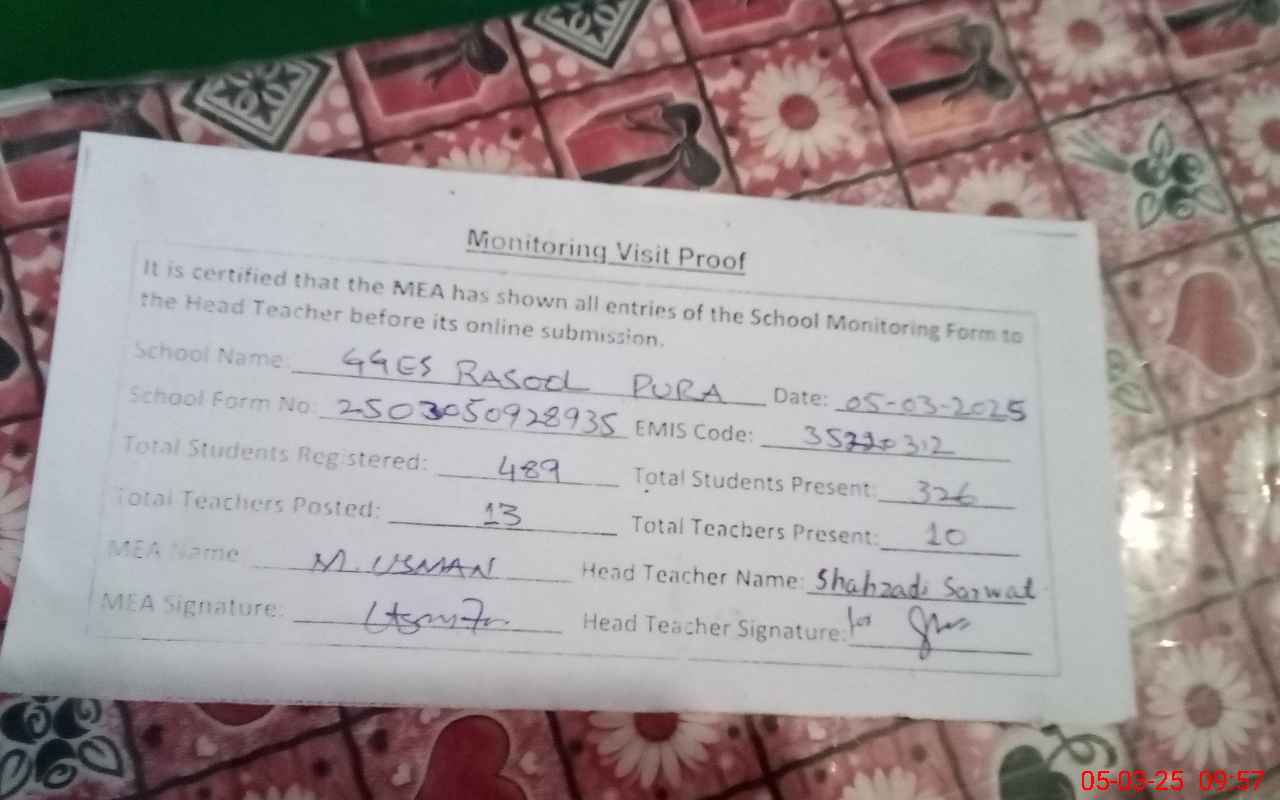 Monitoring Visit Proof
It is certified that the MEA has shown all entries of the School Monitoring Form to
the Head Teacher before its online submission.
School Name: GGES RASOOL PURA Date: 05-03-2025
School Form No: 2503050928935 EMIS Code: 35220312
Total Students Registered: 489 Total Students Present: 326
Total Teachers Posted: 13 Total Teachers Present: 10
MEA Name M. USMAN Head Teacher Name: Shahzadi Sarwat
MEA Signature: Head Teacher Signature: for
05-03-25 09:57